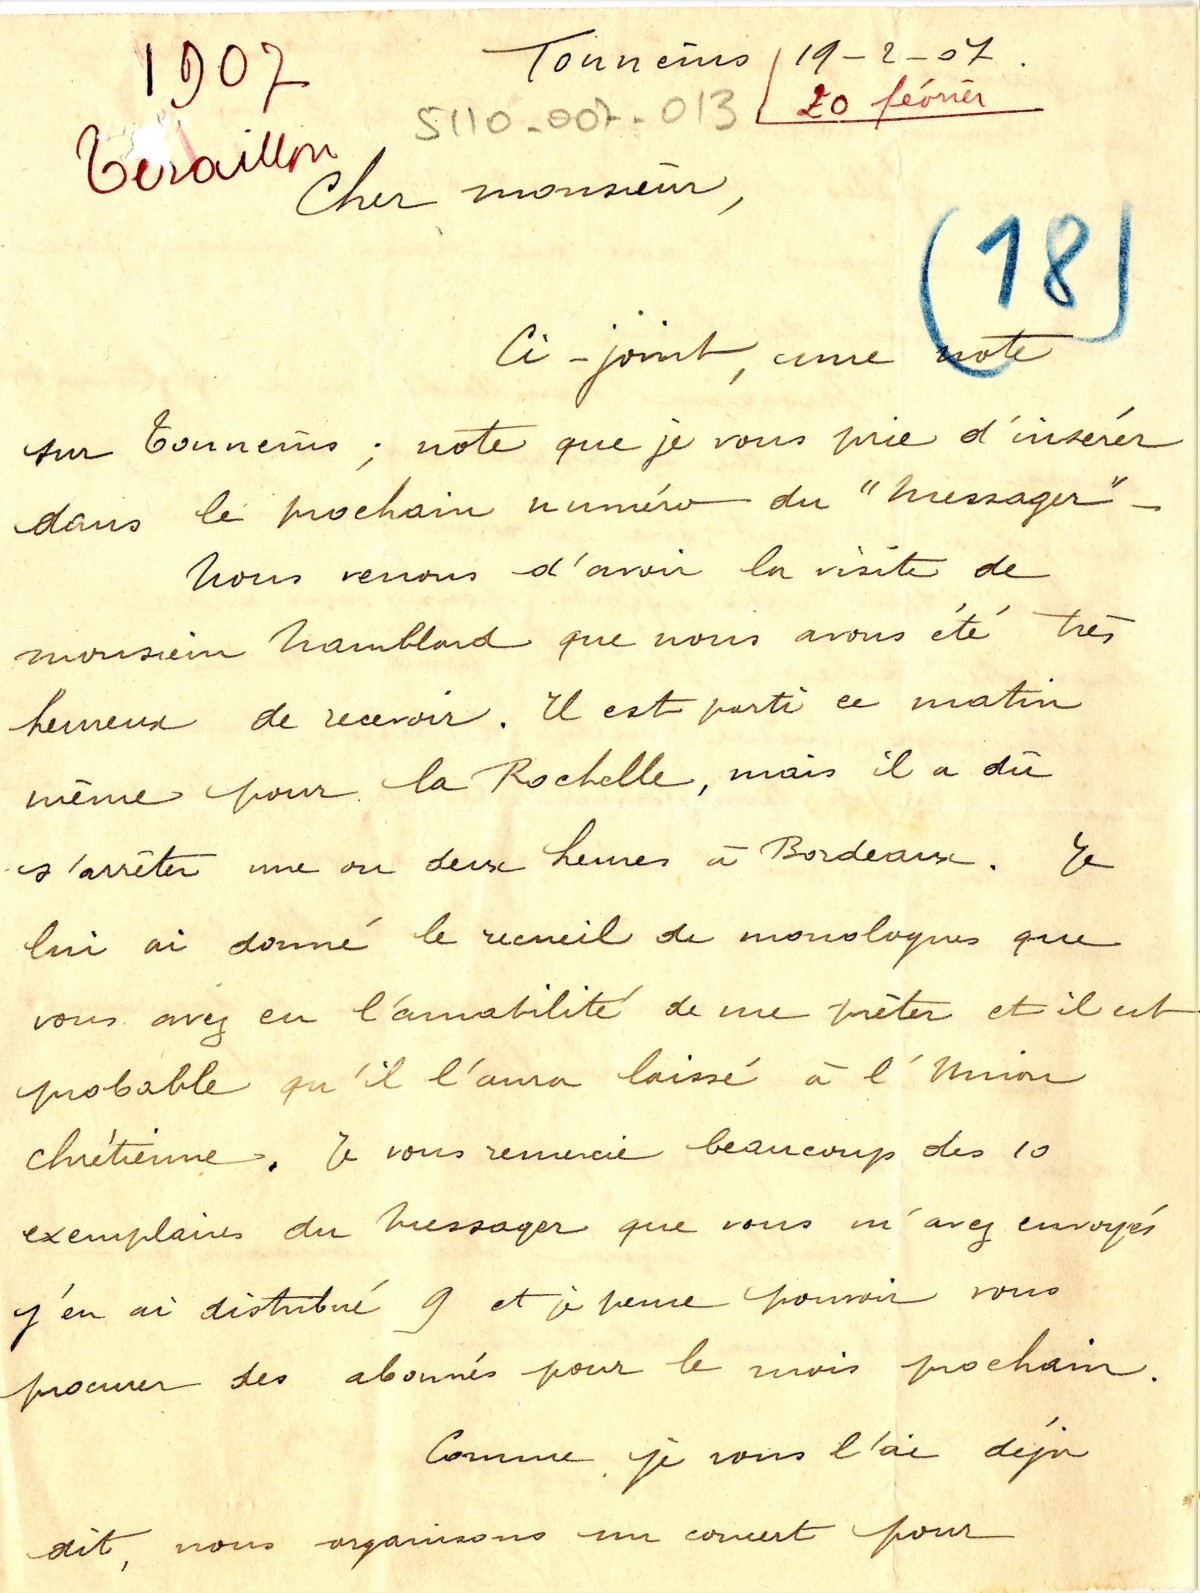 1907
Tonneins 19-2-07.
20 février
5110-007-013
Teraillon
Cher monsieur,
(18)
Ci-joint, une note
sur Tonneins ; note que je vous prie d'insérer
dans le prochain numéro du "Messager" -
Nous venons d'avoir la visite de
monsieur que nous avons été très
heureux de recevoir. Il est parti ce matin
même pour la Rochelle, mais il a dû
s'arrêter une ou deux heures à Bordeaux. Je
lui ai donné le recueil de monologues que
vous avez eu l'amabilité de me prêter et il est
probable qu'il l'aura laissé à l'Union
chrétienne. Je vous remercie beaucoup des 10
exemplaires du Messager que vous m'avez envoyés
j'en ai distribué 9 et je pense pouvoir vous
procurer des abonnés pour le mois prochain.
Comme je vous l'ai déjà
dit, nous organisons un concert pour